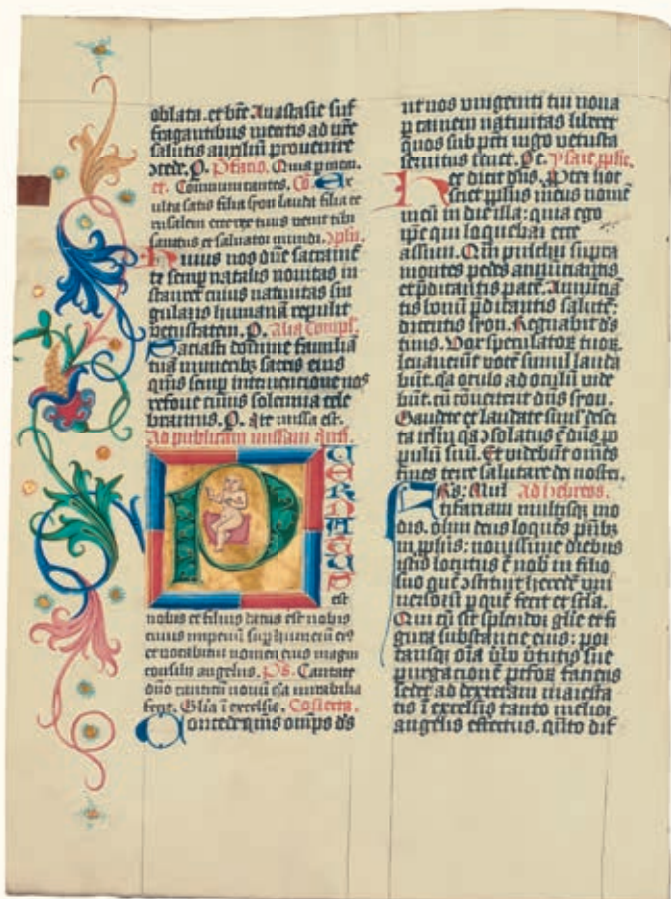 oblata. et bte Anastasie suf
fragantibus meritis ad nre
salutis auxiliu provenire
ↄcede. P. Pfatio. Quia p incar.
et. Communicantes. Co. Ex
ulta satis filia syon lauda filia ie
rusalem ecce rex tuus venit tibi
sanctus et salvator mundi. ↄplen.
Huius nos dne sacrame
ti semp natalis novitas in
stauret cuius nativitas sin
gularis humana repulit
vetustatem. P. Alia Compl.
Saciasti domine familia
tua muneribz sacris eius
qms semp interventione nos
refove cuius solemnia cele
bramus. P. Ite missa est.
Ad publicam missam
PUER NATUS
est
nobis et filius datus est nobis
cuius imperiu sup humeru eis
et vocabitur nomen eius magni
consilij angelus. Ps. Cantate
dno canticu novu qa mirabilia
fecit. Glia i excelsis. Collecta.
Concede qms omps ds
ut nos unigeniti tui nova
p carnem nativitas liberet
quos sub pcti iugo vetusta
servitus tenet. Pe. Ysaie pphe.
Hec dicit dns. Ptei hoc
sciet pplus meus nome
meu in die illa: quia ego
ipe qui loquebar ecce
assum. Qm pulchri supra
montes pedes annuciantis
et pdicantis pace. Annucia
tis bonu pdicantis salute:
dicentis syon. Regnabit ds
tuus. Vox speculatoꝝ tuoꝝ
levaverut voce simul lauda
but. qa oculo ad oculu vide
but. cu converterit dns syon.
Gaudete et laudate simul deser
ta irlm qa ↄsolatus e dns po
pulu suu. Et videbut omes
fines terre salutare dei nostri.
Ad hebreos.
multifarisqz mo
dis. olim deus loques pribz
in pphis: novissime diebus
istis locutus e nob in filio
suo que ↄstituit herede uni
versoru p que fecit et scla.
Qui cu sit splendor glie et fi
gura substantie eius: por
tansqz oia vbo vtutis sue
purgatione pctoꝝ faciens
sedet ad dexteram maiesta
tis i excelsis tanto melior
angelis effectus. quto dif